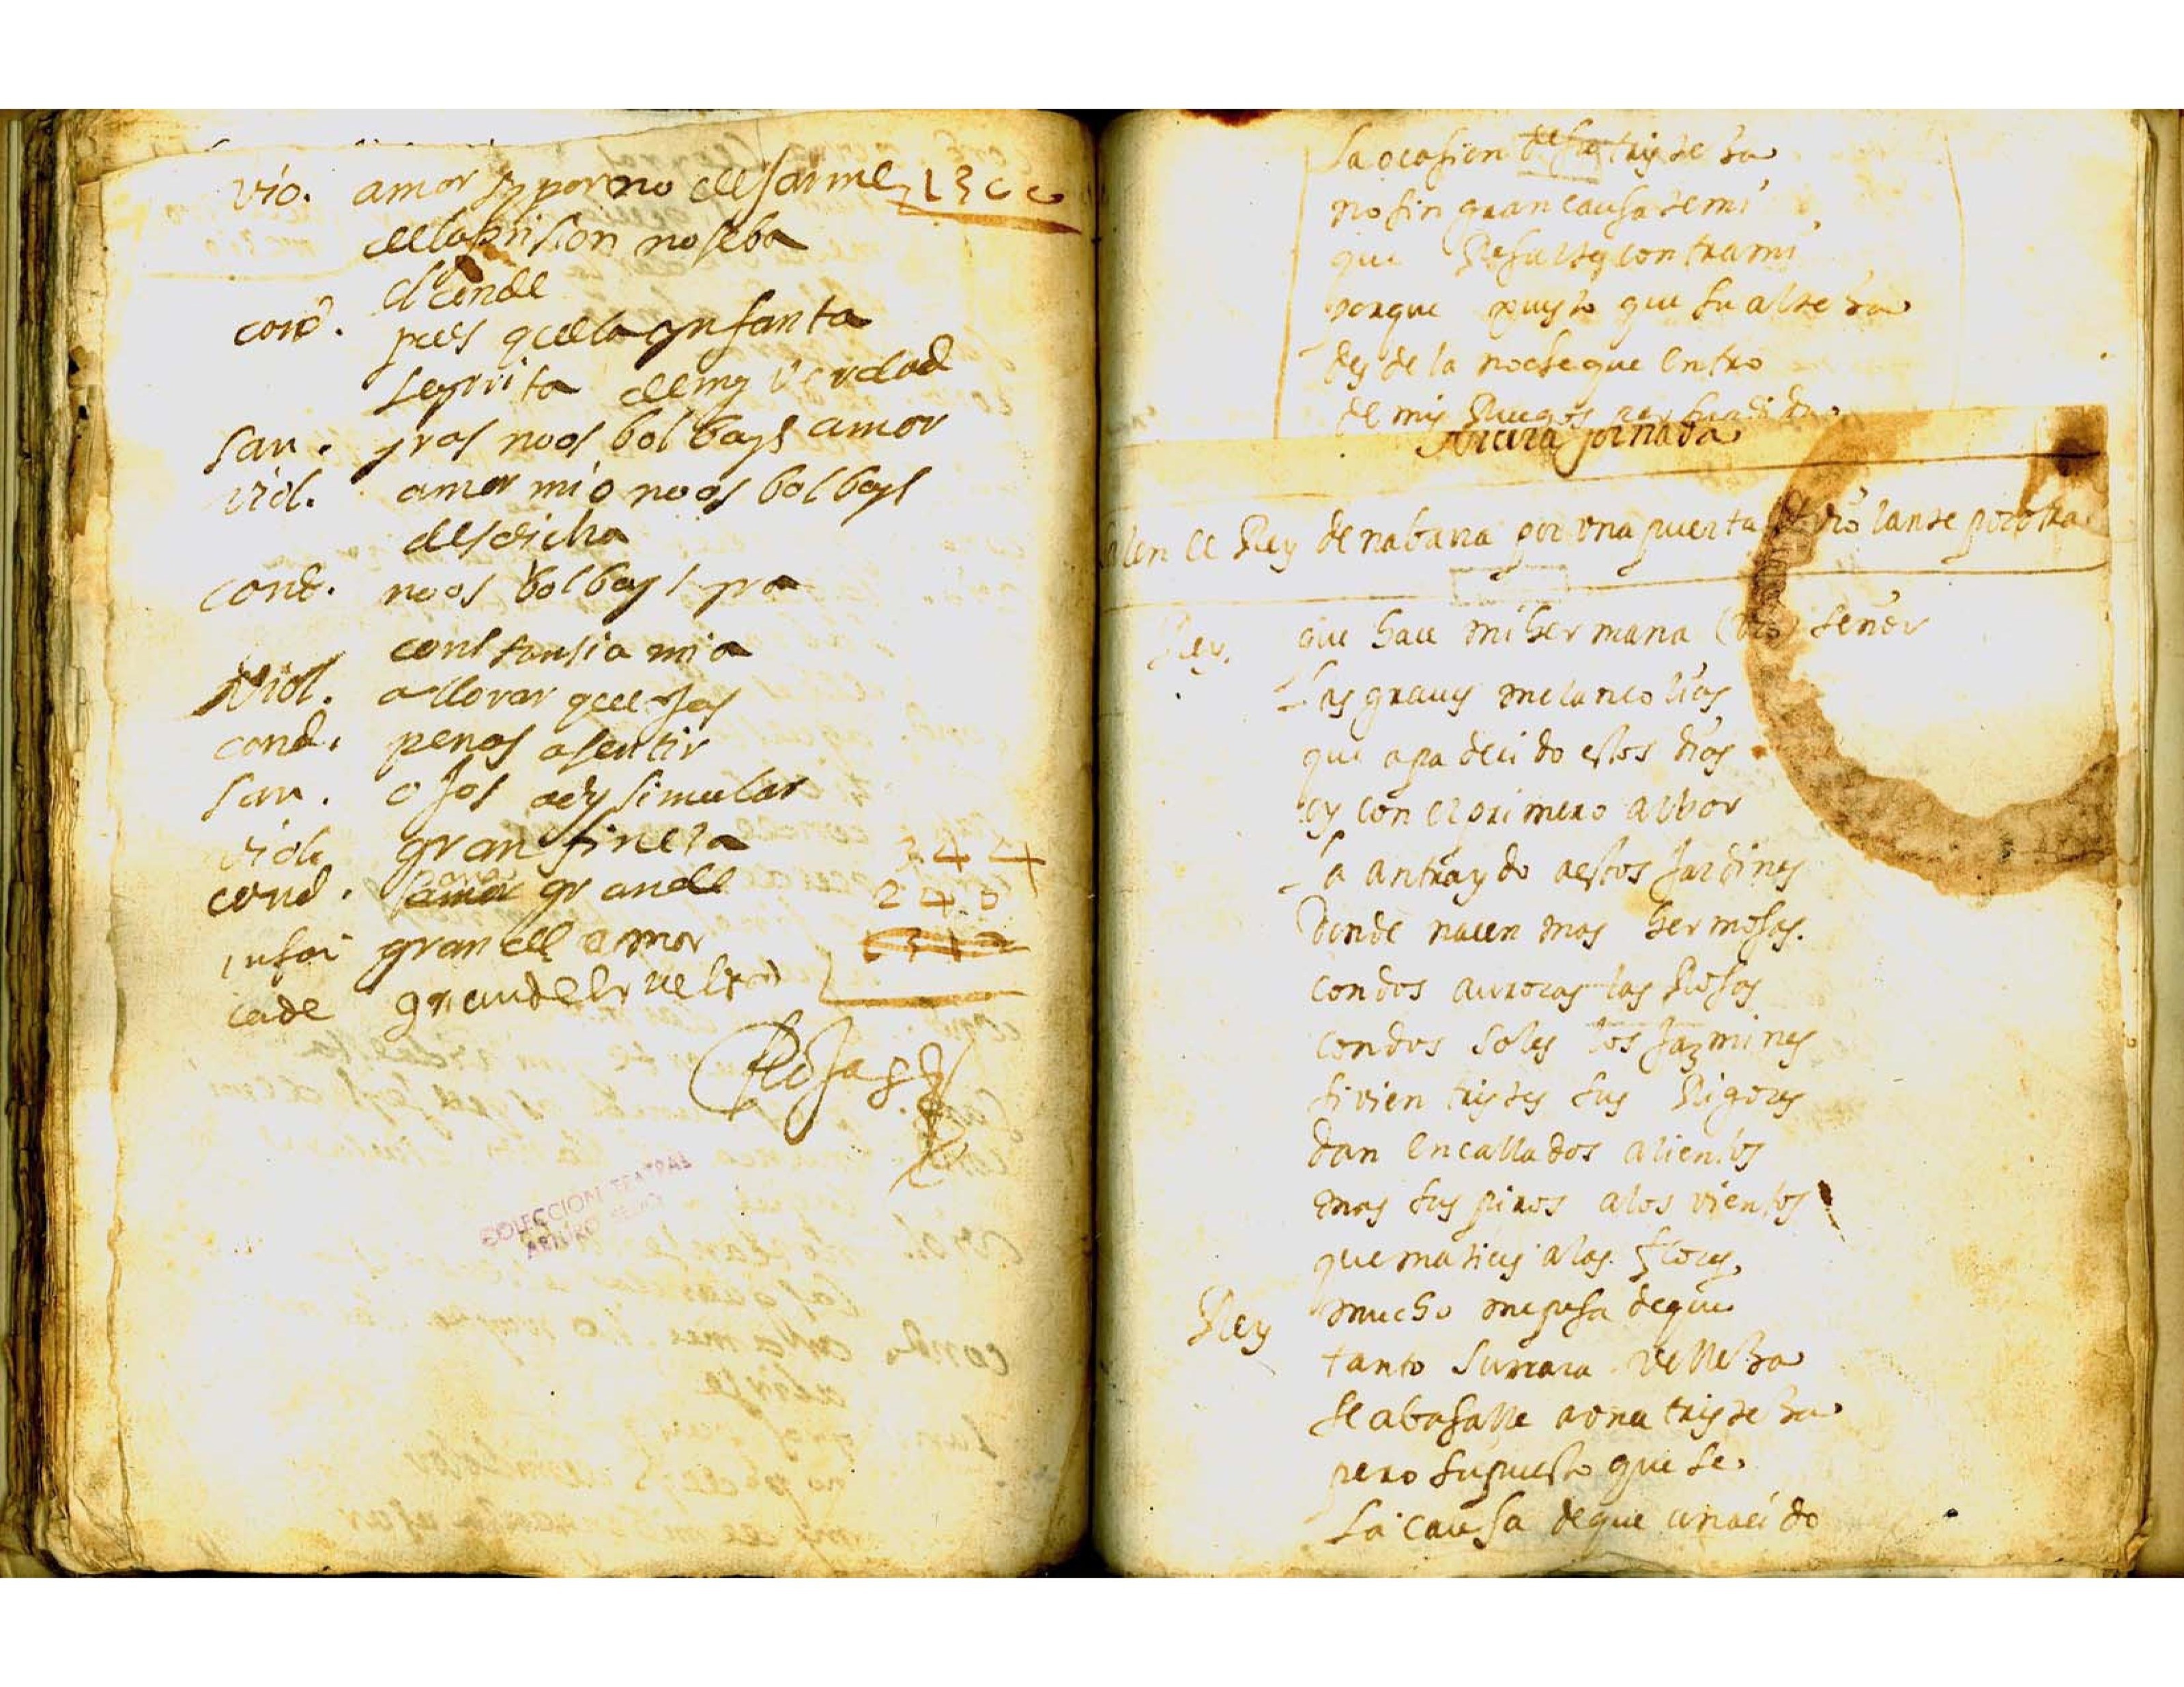 vio. amor si por no desarme 1300
de la prision no se ba
el conde
cond. pues que la ynfanta
se yrrita de my verdad
san. yras no os bolbays amor
viol. amor mio no os bolbays
desdicha
cond. no os bolbays yra
constansia mia
viol. a llorar quexas
cond. penas a sentir
san. ojos a dysimular
viol. gran finesa 344
cond. amor grande 240
infan grande amor
cade grande
Rojas
COLECCION TEATRAL
ARTURO SEDÓ
La ocasion tristeza
no sin gran causa temi
que Resulte contra mi
porque puesto que su alteza
desde la noche que entro
de mis Ruegos
jornada
salen el Rey de nabarra por una puerta violante por otra
Rey. que hace mi hermana (vio) señor
las graves melancolias
que a padecido estos dias
oy con el primero albor
la an traydo a estos Jardines
Donde nacen mas hermosas.
con dos auroras las Rosas
con dos soles los Jazmines
si vien tristes sus Rigores
dan en callados alientos
mas suspiros a los vientos
que matices a las flores,
Rey mucho me pesa de que
tanto su rara velleza
se abasalle a una tristeza
pero supuesto que se
La causa de que a nacido